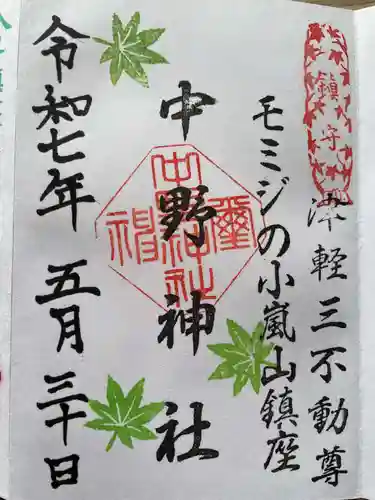 鎮守
津軽三不動尊
モミジの小嵐山鎮座
中野神社
令和七年五月三十日